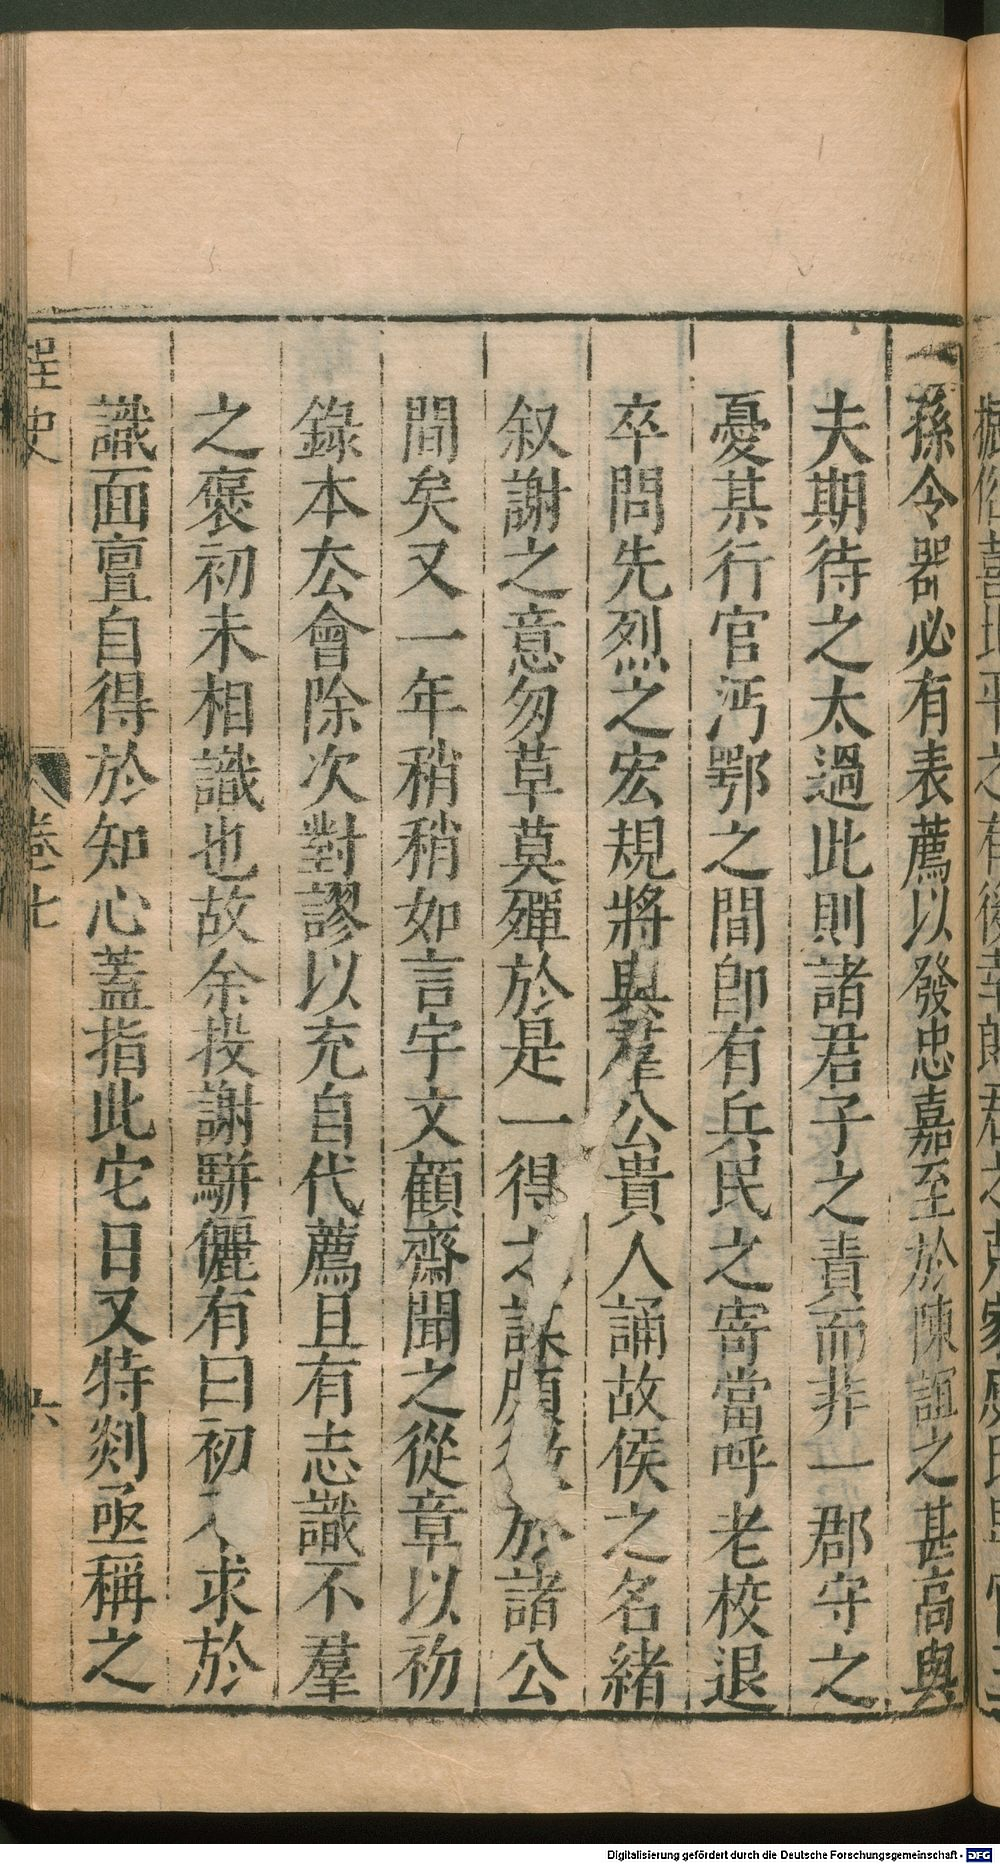 孫令器必有表薦以發忠嘉至於陳誼之甚高與
夫期待之太過此則諸君子之責而非一郡守之
憂某行官沔鄂之間卽有兵民之寄當呼老校退
卒問先烈之宏規將與羣公貴人誦故侯之名緒
叙謝之意匆草莫殫於是一得於諸公
間矣又一年稍稍如言宇文顧齋聞之從章以初
錄本厺會除次對謬以充自代薦且有志識不羣
之褒初未相識也故余投謝駢儷有曰初求於
識面亶自得於知心蓋指此宅日又特剡亟稱之
桯史
卷七
六
Digitalisierung gefördert durch die Deutsche Forschungsgemeinschaft - DFG